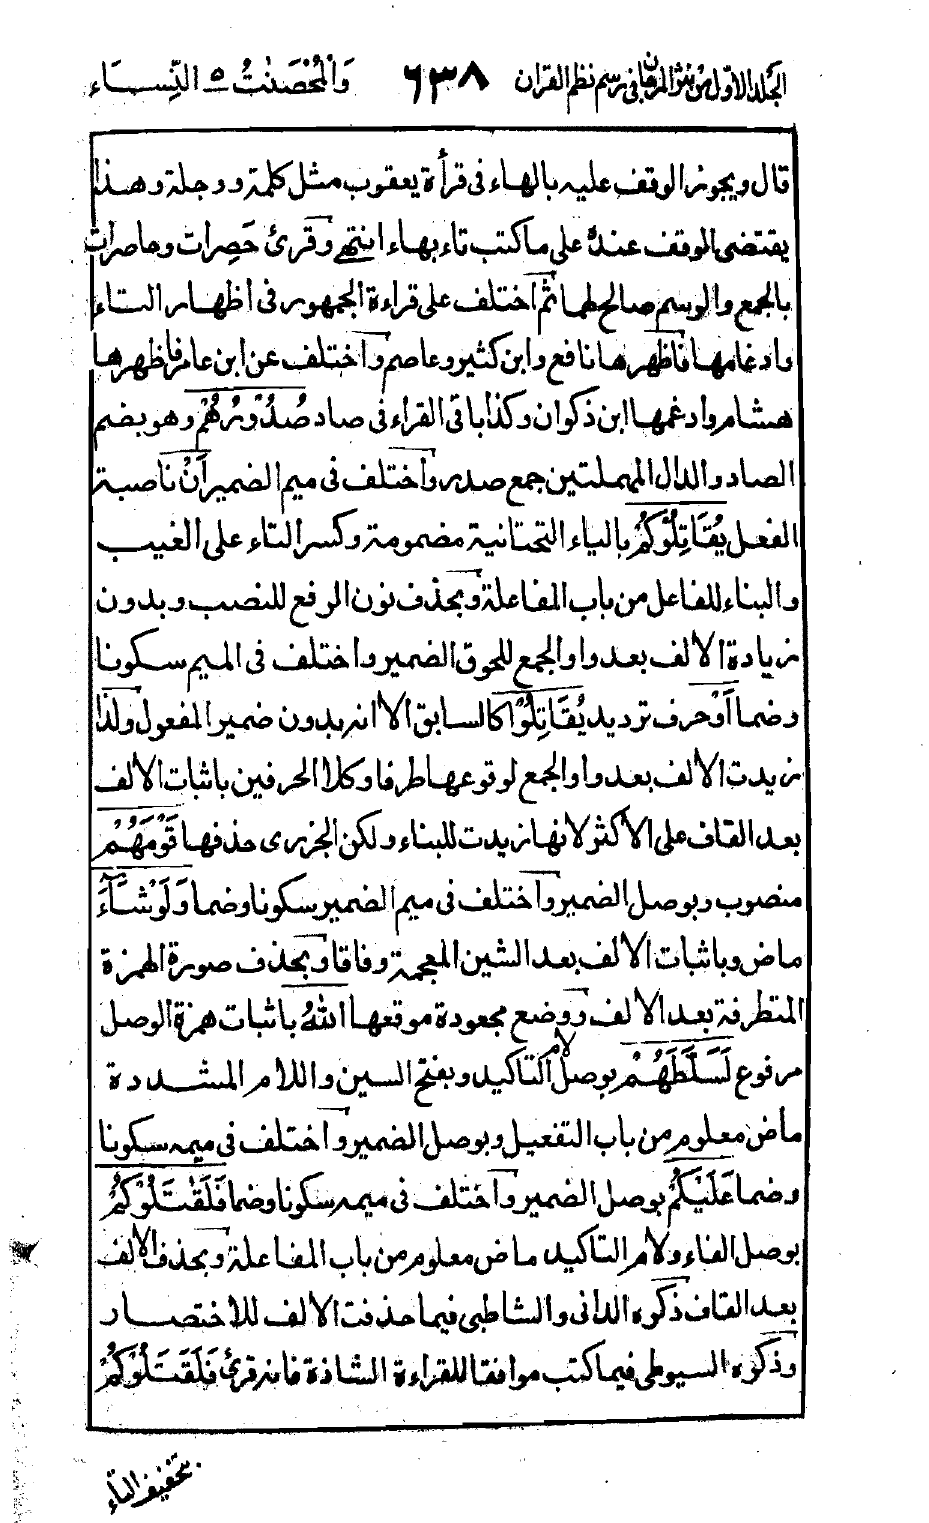 الجلد الاول من نثر المرجان فى رسم نظم القران ٦٣٨ وَالْمُحْصَنٰتُ ٥ النِّسَاء
قال ويجوز الوقف عليه بالهاء فى قرأة يعقوب مثل كلمة ووجلة وهذا
يقتضى الوقف عندهٗ على ما كتب تاء بهاء انتهى وقرئ حَصِرات وحاصرات
بالجمع والرسم صالح لهما ثم اختلف على قراءة الجمهور فى اظهار التاء
وادغامها فاظهرها نافع وابن كثير وعاصم واختلف عن ابن عامر فاظهرها
هشام وادغمها ابن ذكوان وكذا باقى القراء فى صاد صُدُوْرُهُمْ وهو بضم
الصاد والدال المهملتين جمع صدر واختلف فى ميم الضمير اَنْ ناصبة
الفعل يُقَاتِلُوْكُمْ بالياء التحتانية مضمومة وكسر التاء على الغيب
والبناء للفاعل من باب المفاعلة وبحذف نون الرفع للنصب وبدون
زيادة الالف بعد واو الجمع للحوق الضمير واختلف فى الميم سكونا
وضما اَوْ حرف ترديد يُقَاتِلُوْا كالسابق الا انه بدون ضمير المفعول ولذا
زيدت الالف بعد واو الجمع لوقوعها طرفا وكلا الحرفين باثبات الالف
بعد القاف على الاكثر لانها زيدت للبناء ولكن الجزرى حذفها قَوْمَهُمْ
منصوب وبوصل الضمير واختلف فى ميم الضمير سكونا وضما وَلَوْ شَآءَ
ماض وباثبات الالف بعد الشين المعجمة وفاقا وبحذف صورة الهمزة
المتطرفة بعد الالف ووضع مجعودة موقعها اللهُ باثبات همزة الوصل
مرفوع لَسَلَّطَهُمْ بوصل لام التاكيد وبفتح السين واللام المشددة
ماض معلوم من باب التفعيل وبوصل الضمير واختلف فى ميمه سكونا
وضما عَلَيْكُمْ بوصل الضمير واختلف فى ميمه سكونا وضما فَلَقٰتَلُوْكُمْ
بوصل الفاء ولام التاكيد ماض معلوم من باب المفاعلة وبحذف الالف
بعد القاف ذكره الدانى والشاطبى فيما حذفت الالف للاختصار
وذكره السيوطى فيما كتب موافقا للقراءة الشاذة فانه قرئ فَلَقَتَلُوْكُمْ
بتخفيف التاء